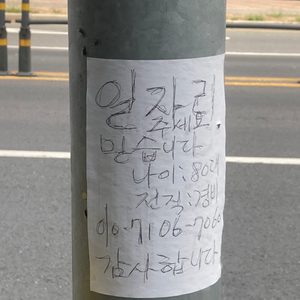 일자리
주세요.
믿습니다
나이:80대
전직:경비
010-7106-7060
감사합니다